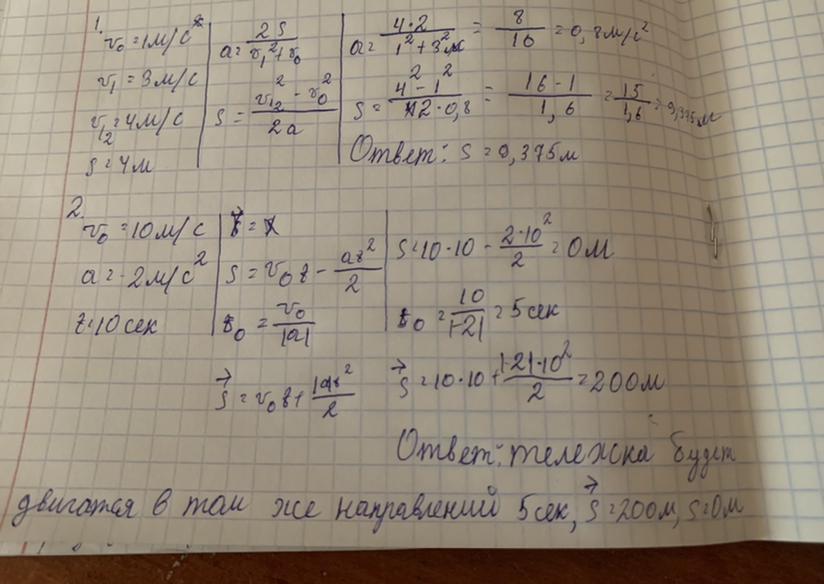 1.
v₀ = 1 м/с
v₁ = 3 м/с
v₂ = 4 м/с
S = 4 м
a = 2S / v₁² + v₀
S = v₂² - v₀² / 2a
a = 4·2 / 1² + 3² = 8 / 10 = 0,8 м/с²
S = 4² - 1² / 2·0,8 = 16 - 1 / 1,6 = 15 / 1,6 = 9,375 м
Ответ: S = 9,375 м
2.
v₀ = 10 м/с
a = -2 м/с²
t = 10 сек
S = v₀t - at² / 2
t₀ = v₀ / |a|
S⃗ = v₀t + |a|t² / 2
S = 10·10 - 2·10² / 2 = 0 м
t₀ = 10 / |-2| = 5 сек
S⃗ = 10·10 + |-2|·10² / 2 = 200 м
Ответ: тележка будет
двигатся в том же направлений 5 сек, S⃗ = 200 м, S = 0 м